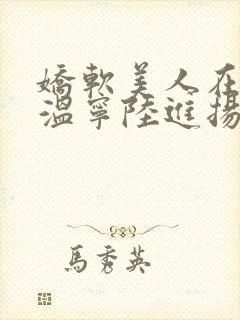 嬌軟美人在
溫寧陸進揚
馬秀英